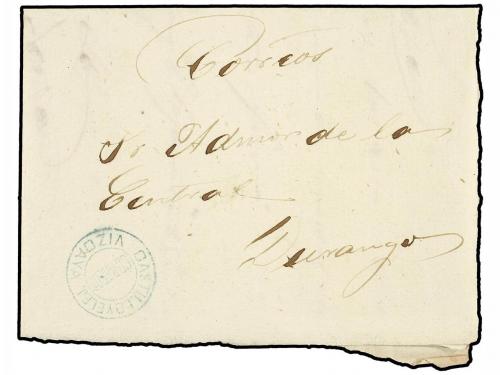 Correos
Sr. Admor. de la
Central
Durango
CASTILLO Y ELEJ.
VIZCAYA